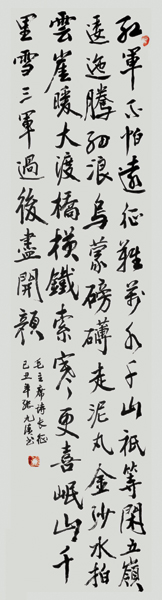 紅軍不怕遠征難萬水千山祇等閑五嶺
逶迤騰細浪烏蒙磅礴走泥丸金沙水拍
雲崖暖大渡橋橫鐵索寒更喜岷山千
里雪三軍過後盡開顏
毛主席詩長征
己丑年張